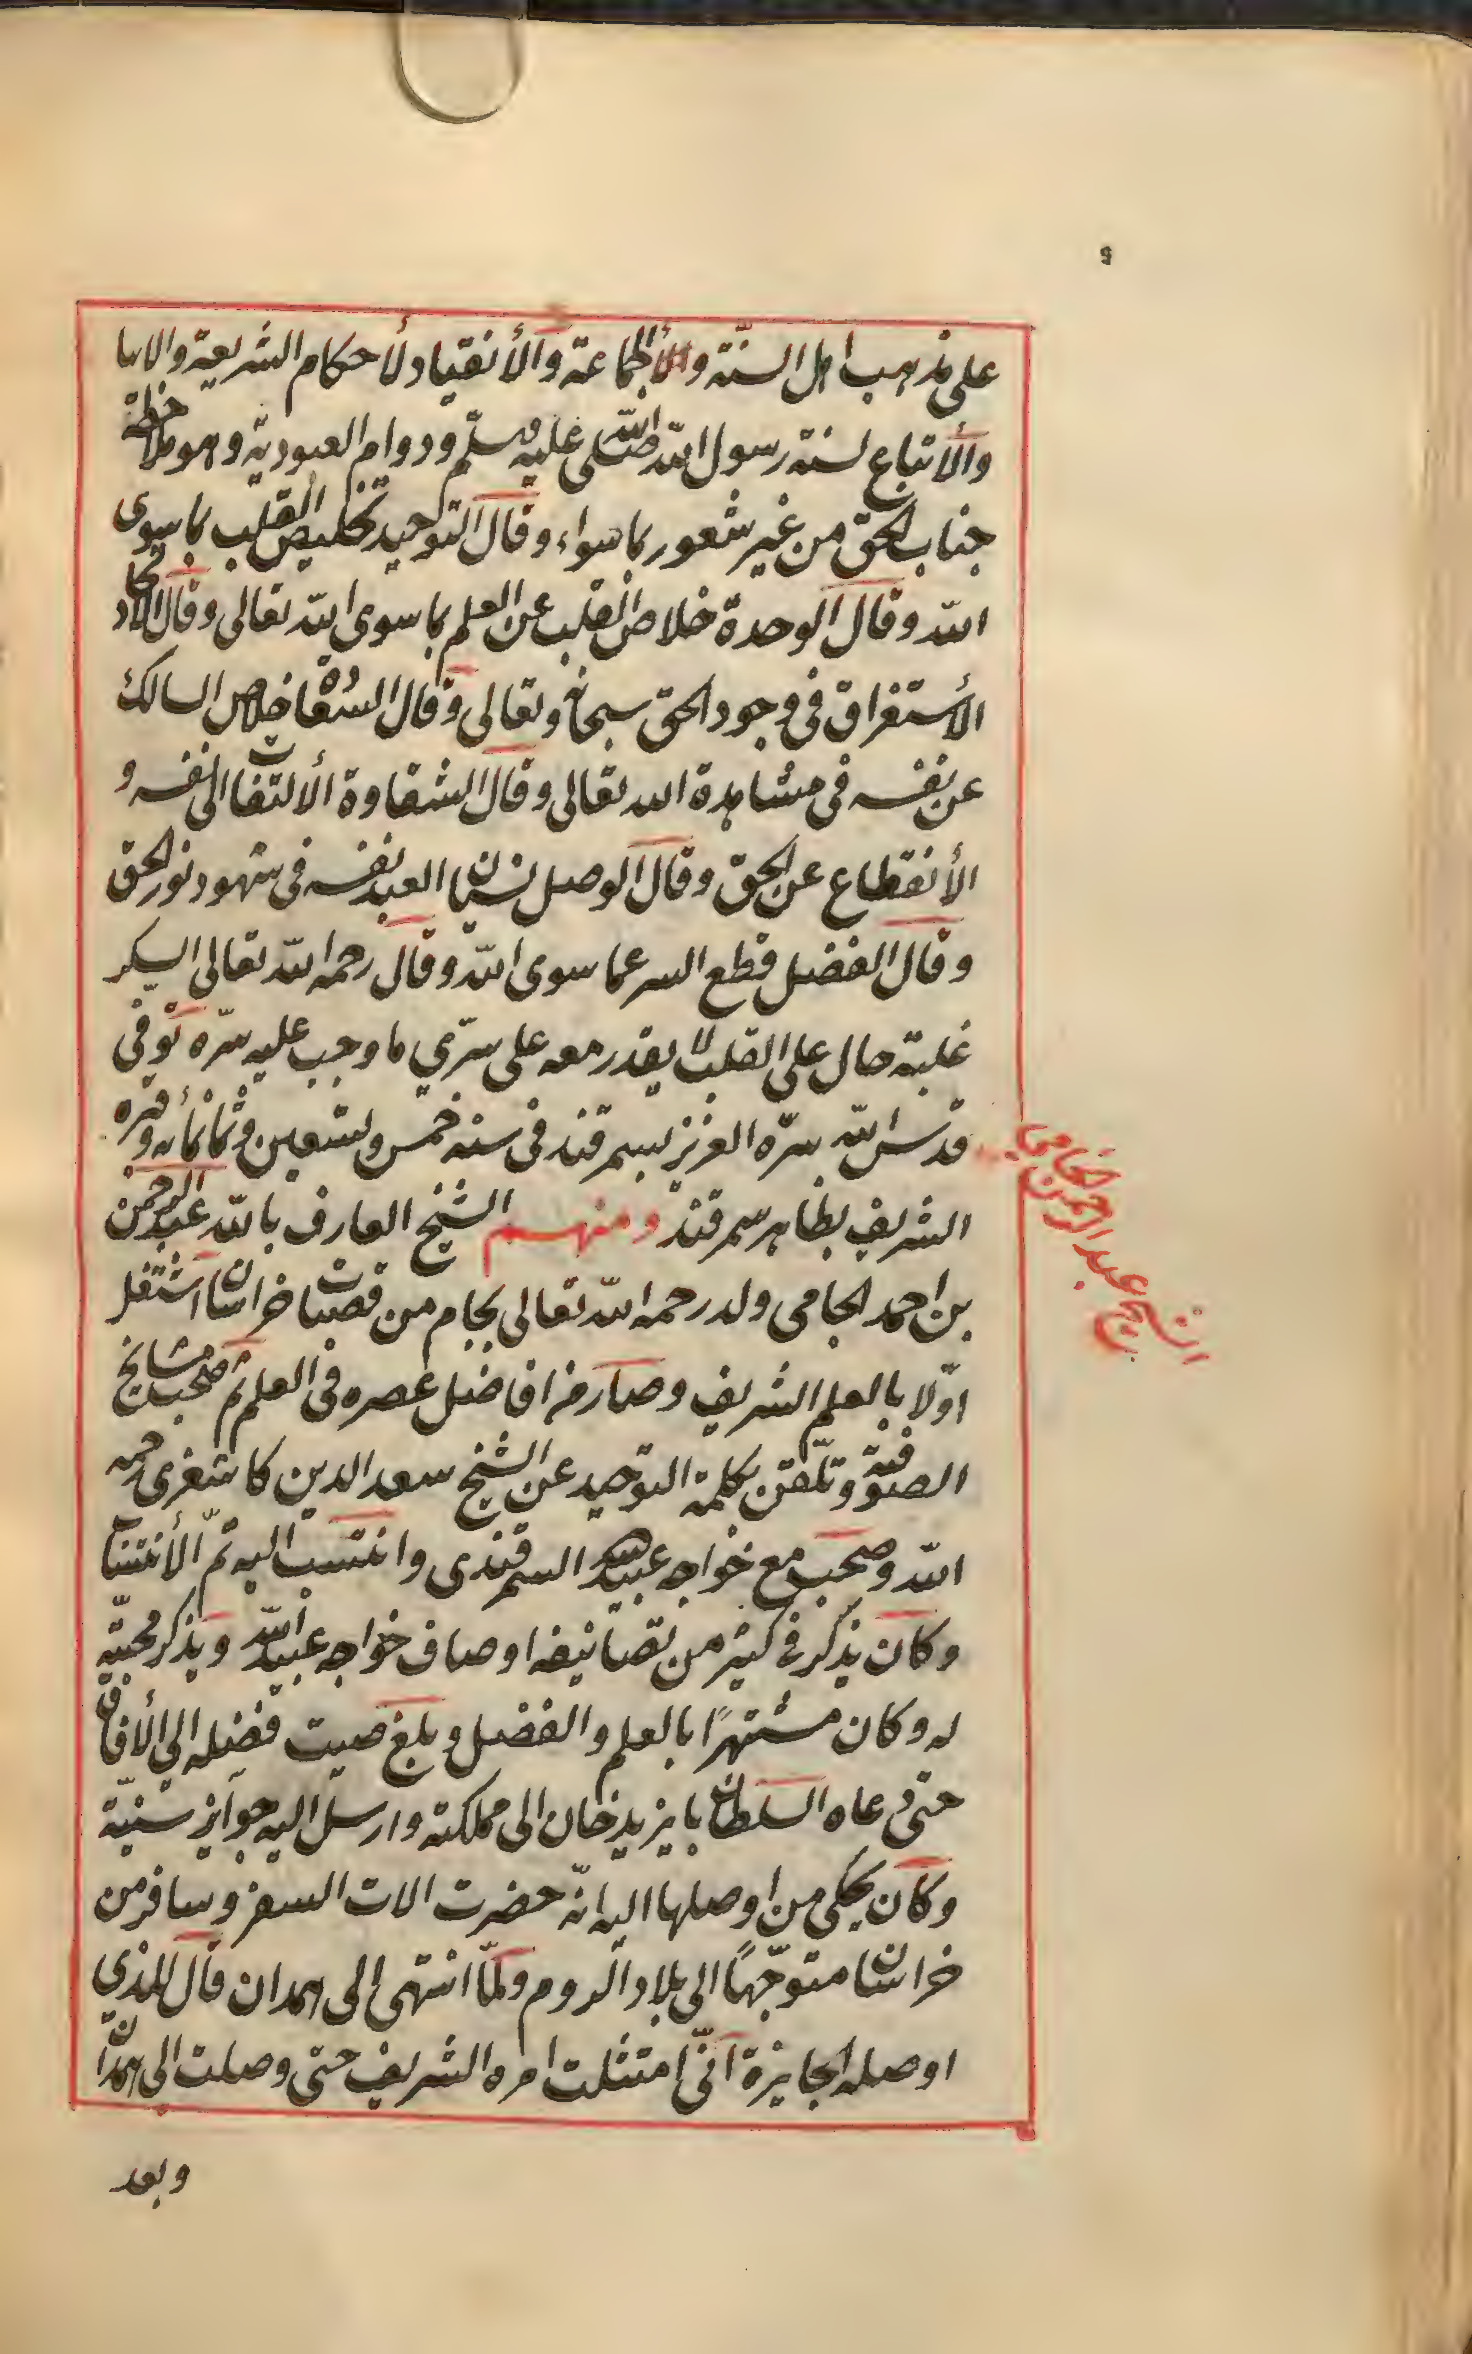 على مذهب اهل السنّة والجماعة والأنقياد لأحكام الشريعة والايا
والأتباع لسنة رسول الله صلى الله عليه وسلّم ودوام العبودية وهو ملاحظة
جناب الحق من غير شعور بما سواء وقال التوحيد تخليص القلب بما سوى
الله وقال الوحدة خلاص القلب عن العلم بما سوى الله تعالى وقال الاتحاد
الأستغراق فى وجود الحق سبحانه وتعالى وقال السعادة خلاص السالك
عن نفسه فى مشاهدة الله تعالى وقال الشقاوة الألتفات الى نفسه و
الأنقطاع عن الحق وقال الوصل نسيان العبد نفسه فى شهود نور الحق
وقال الفضل قطع السر عما سوى الله وقال رحمه الله تعالى السكر
غلبة حال على القلب لا يقدر معه على سرّي ما وجب عليه سرّه توفى
قدس الله سرّه العزيز بسمرقند فى سنه خمس وتسعين وثمانمأيه وقبره
الشريف بظاهر سمرقند ومنهم الشيخ العارف بالله عبد الرحمن
الشيخ عبد الرحمن الجامى
بن احمد الجامى ولد رحمه الله تعالى بجام من قصبات خراسان اشتغل
اوّلا بالعلم الشريف وصار من افاضل عصره فى العلم ثم صحب مشايخ
الصوفية وتلقن بكلمة التوحيد عن الشيخ سعد الدين كاشغرى رحمه
الله وصحب مع خواجه عبيد الله السمرقندى وانتسب اليه تمّ الأنتساب
وكان يذكر فى كثير من تصانيفه اوصاف خواجه عبيد الله ويذكر محبّته
له وكان مشتهرًا بالعلم والفضل وبلغ صيت فضله الى الأفاق
حتى دعاه السلطان بايزيد خان الى مملكته وارسل اليه جوايز سنيّة
وكان يحكى من اوصلها اليه انّه حضرت الات السفر وسافر من
خراسان متوجّهًا الى بلاد الروم ولمّا انتهى الى همدان قال للذي
اوصله الجايزة انّى امتثلت امره الشريف حتى وصلت الى همدان
وبعد